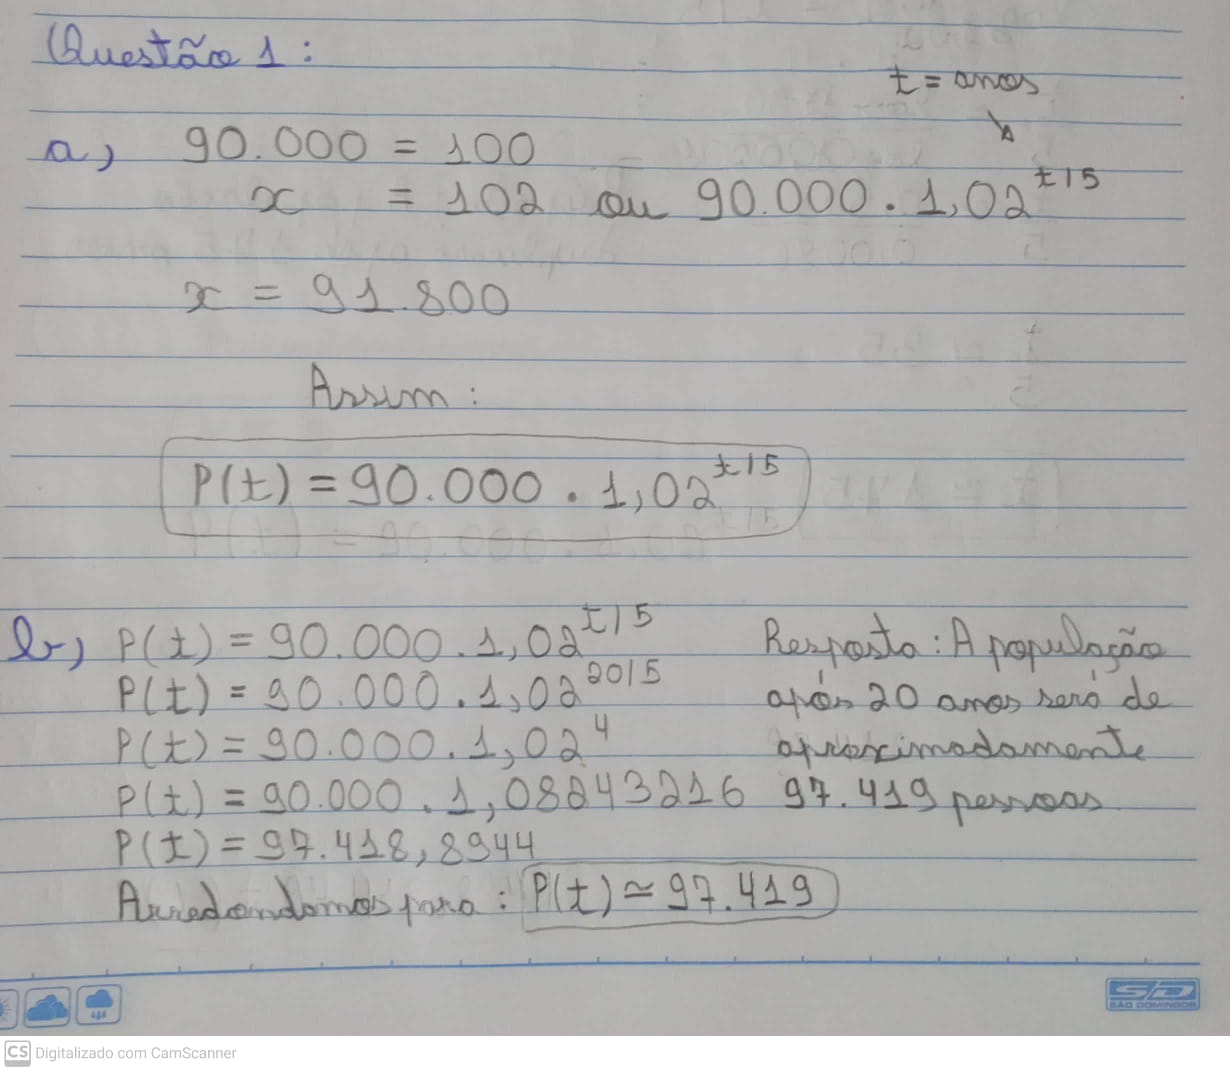 Questão 1:
t = anos
a) 90.000 = 100
x = 102 ou 90.000 . 1,02^t/5
x = 91.800
Assim:
P(t) = 90.000 . 1,02^t/5
b) P(t) = 90.000 . 1,02^t/5
P(t) = 90.000 . 1,02^20/5
P(t) = 90.000 . 1,02^4
P(t) = 90.000 . 1,08243216
P(t) = 97.418,8944
Arredondamos para: P(t) ≃ 97.419
Resposta: A população
após 20 anos será de
aproximadamente
97.419 pessoas
SD
SÃO DOMINGOS
CS Digitalizado com CamScanner